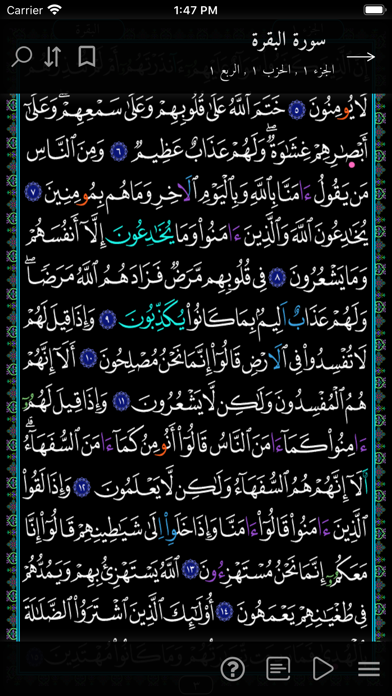 Carrier 1:47 PM
سورة البقرة
الجزء ١ , الحزب ١ , الربع ١
لَا يُومِنُونَ ٥ خَتَمَ ٱللَّهُ عَلَىٰ قُلُوبِهِمْ وَعَلَىٰ سَمْعِهِمْ وَعَلَىٰ
أَبْصَٰرِهِمْ غِشَٰوَةٌ وَلَهُمْ عَذَابٌ عَظِيمٌ ٦ وَمِنَ ٱلنَّاسِ
مَن يَقُولُ ءَامَنَّا بِٱللَّهِ وَبِٱلْيَوْمِ ٱلَاخِرِ وَمَا هُم بِمُومِنِينَ ٧
يُخَٰدِعُونَ ٱللَّهَ وَٱلَّذِينَ ءَامَنُوا۟ وَمَا يُخَٰدِعُونَ إِلَّآ أَنفُسَهُمْ
وَمَا يَشْعُرُونَ ٨ فِى قُلُوبِهِم مَّرَضٌ فَزَادَهُمُ ٱللَّهُ مَرَضًا
وَلَهُمْ عَذَابٌ اَلِيمٌ بِمَا كَانُوا۟ يُكَذِّبُونَ ٩ وَإِذَا قِيلَ لَهُمْ
لَا تُفْسِدُوا۟ فِى ٱلَارْضِ قَالُوٓا۟ إِنَّمَا نَحْنُ مُصْلِحُونَ ١٠ أَلَآ إِنَّهُمْ
هُمُ ٱلْمُفْسِدُونَ وَلَٰكِن لَّا يَشْعُرُونَ ١١ وَإِذَا قِيلَ لَهُمُۥٓ
ءَامِنُوا۟ كَمَآ ءَامَنَ ٱلنَّاسُ قَالُوٓا۟ أَنُومِنُ كَمَآ ءَامَنَ ٱلسُّفَهَآءُ
أَلَآ إِنَّهُمْ هُمُ ٱلسُّفَهَآءُ وَلَٰكِن لَّا يَعْلَمُونَ ١٢ وَإِذَا لَقُوا۟
ٱلَّذِينَ ءَامَنُوا۟ قَالُوٓا۟ ءَامَنَّا وَإِذَا خَلَوِا۟ اِلَىٰ شَيَٰطِينِهِمْ قَالُوٓا۟ إِنَّا
مَعَكُمُۥٓ إِنَّمَا نَحْنُ مُسْتَهْزِءُونَ ١٣ ٱللَّهُ يَسْتَهْزِئُ بِهِمْ وَيَمُدُّهُمْ
فِى طُغْيَٰنِهِمْ يَعْمَهُونَ ١٤ أُو۟لَٰٓئِكَ ٱلَّذِينَ ٱشْتَرَوُا۟ ٱلضَّلَٰلَةَ